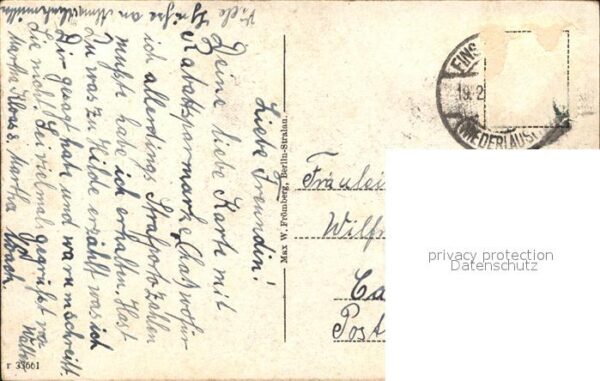 Liebe Freundin!
Deine liebe Karte mit
Rabattsparmarke (ha) wofür
ich allerdings Strafporto zahlen
mußte habe ich erhalten. Hast
Du was zu Hilde erzählt was ich
Dir gesagt habe und warum schreibt
Sie nicht! Sei vielmals gegrüßt von
Martha
Viele Grüße an
Max W. Frömberg, Berlin-Stralau.
EINS
19. 2
(NIEDERLAUS
Fräulein
Wilf
Ca
Post
privacy protection
Datenschutz
r 33661